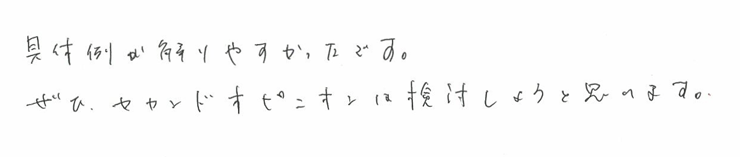 具体例が解りやすかったです。
ぜひ、セカンドオピニオンは検討しようと思います。